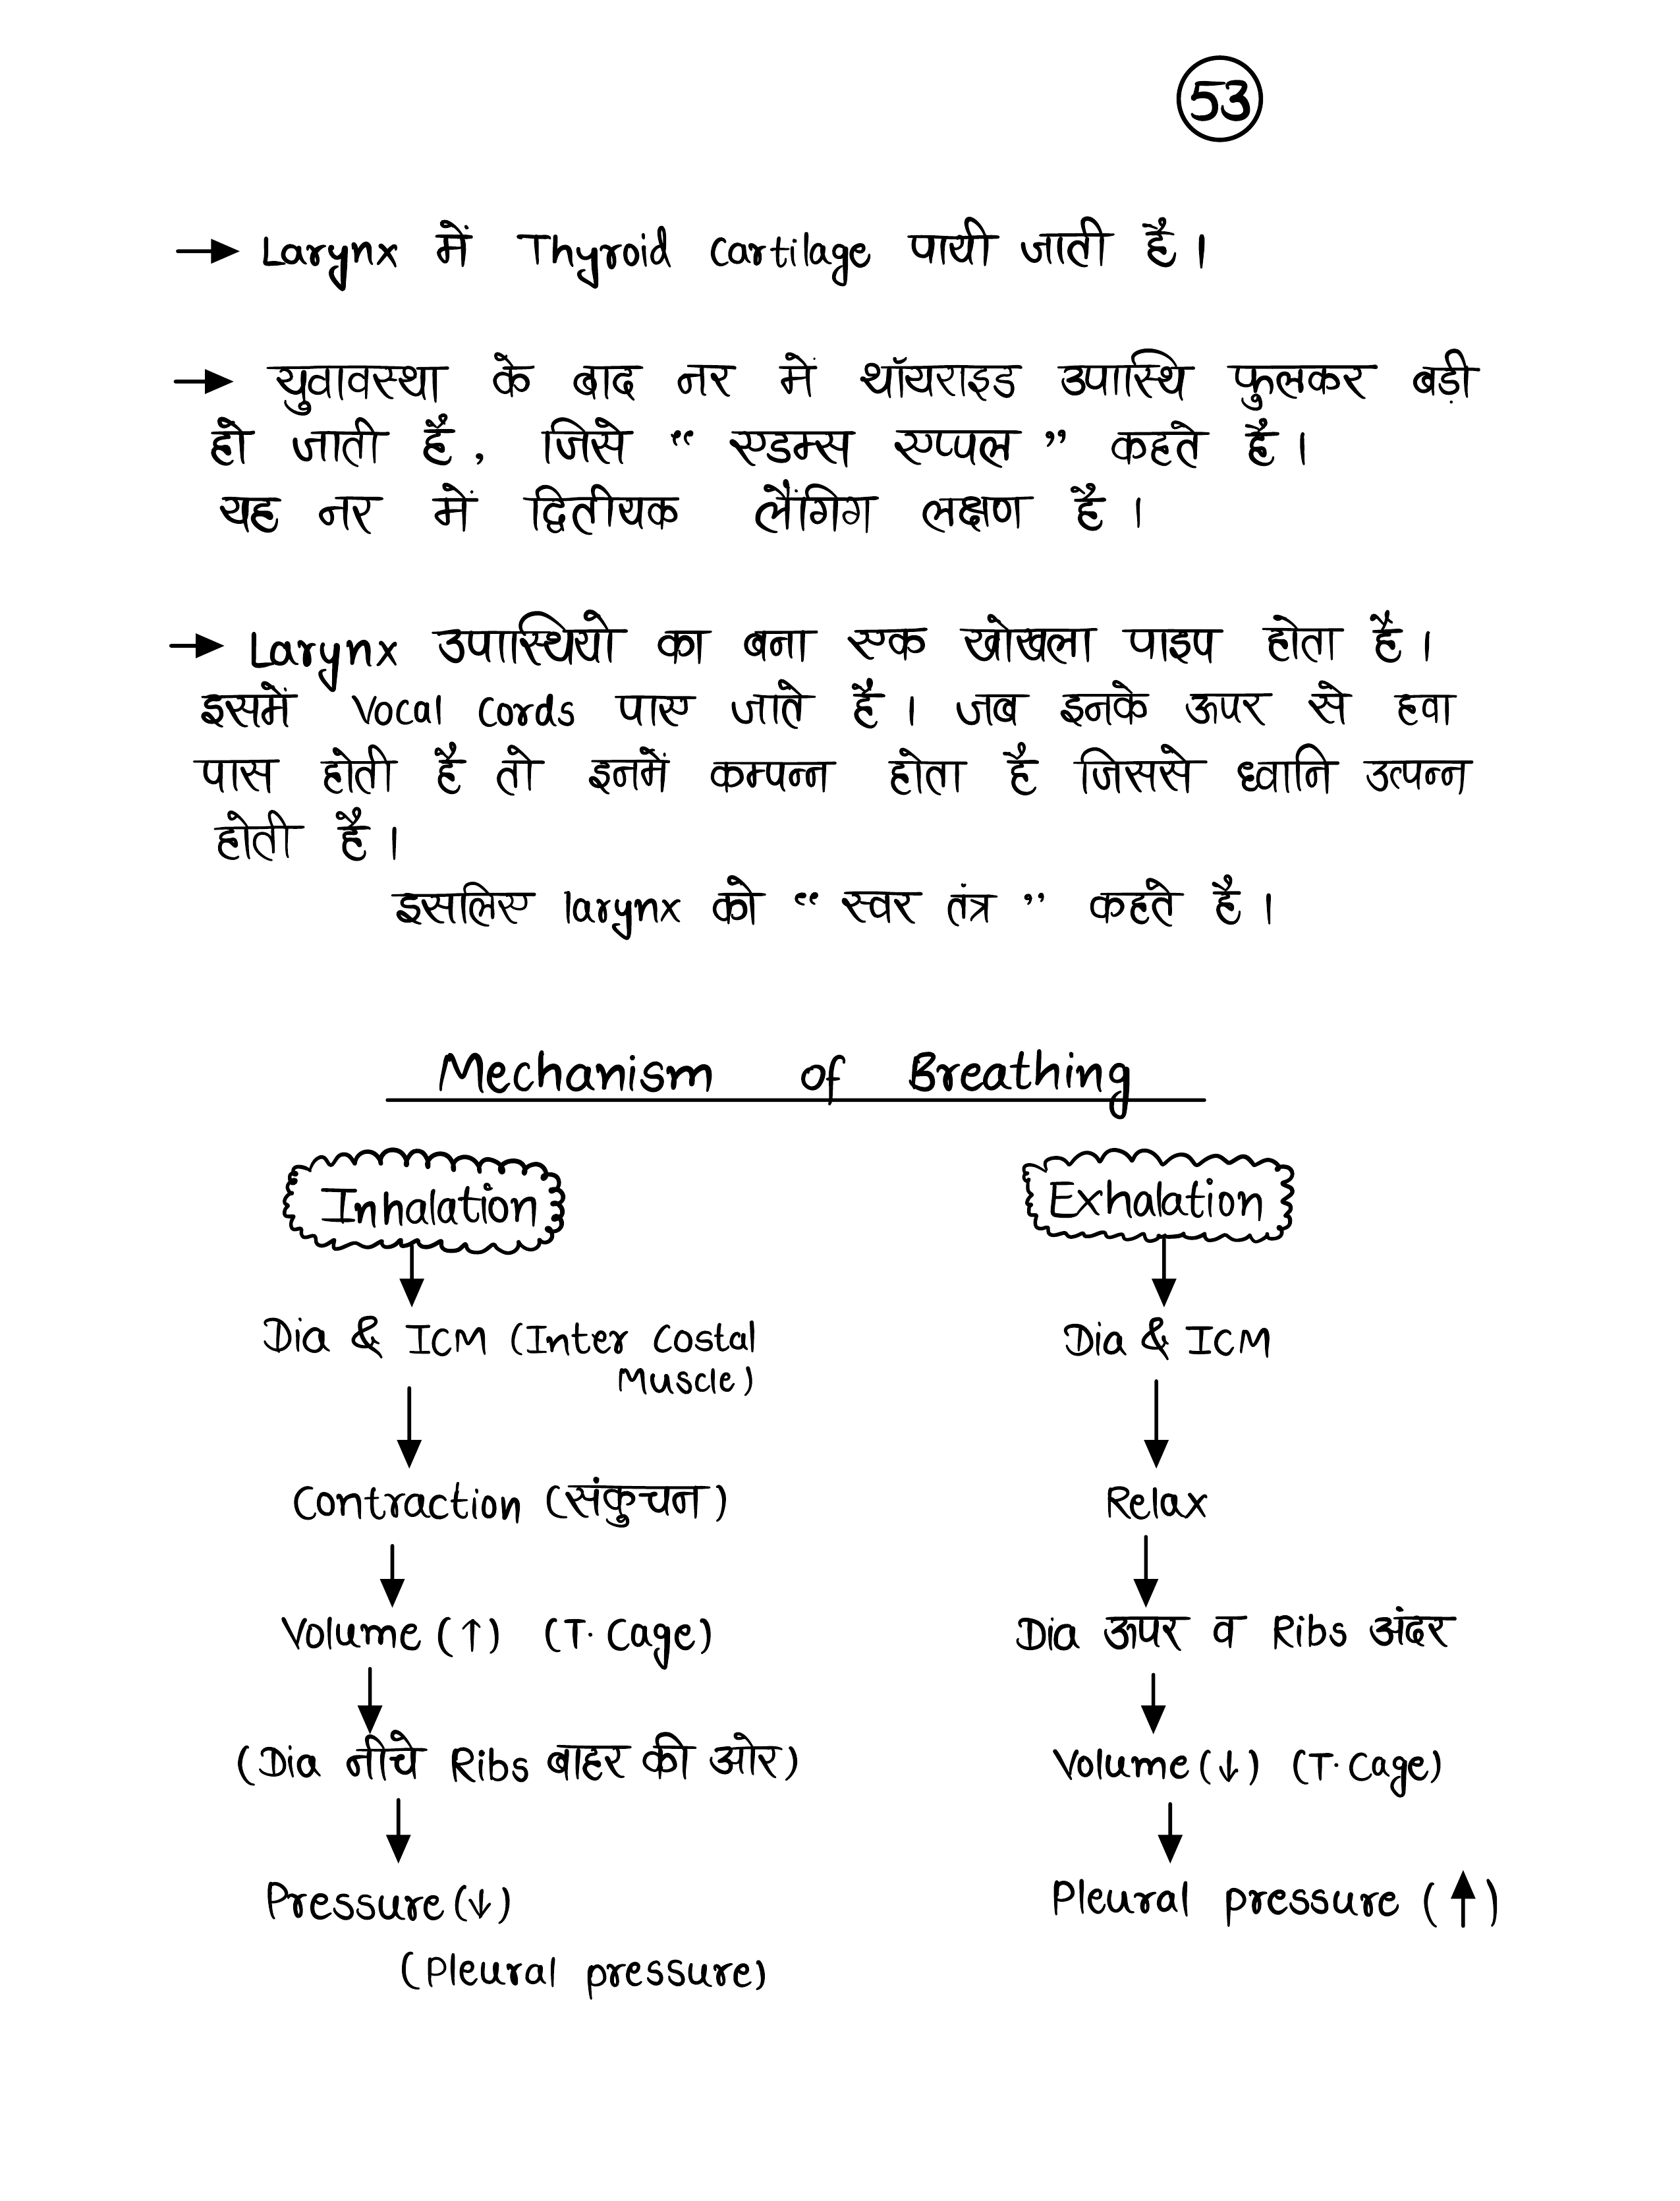 53
→ Larynx में Thyroid Cartilage पायी जाती है ।
→ युवावस्था के बाद नर में थॉयराइड उपास्थि फुलकर बड़ी
हो जाती है , जिसे “ एडम्स एप्पल ” कहते है ।
यह नर में द्वितीयक लैंगिग लक्षण है ।
→ Larynx उपास्थियो का बना एक खोखला पाइप होता है ।
इसमें Vocal Cords पाए जाते है । जब इनके ऊपर से हवा
पास होती है तो इनमें कम्पन्न होता है जिससे ध्वानि उत्पन्न
होती है ।
इसलिए larynx को “ स्वर तंत्र ” कहते है ।
Mechanism of Breathing
Inhalation
Dia & ICM (Inter Costal
Muscle)
Contraction (संकुचन)
Volume (↑) (T. Cage)
(Dia नीचे Ribs बाहर की ओर)
Pressure (↓)
(Pleural pressure)
Exhalation
Dia & ICM
Relax
Dia ऊपर व Ribs अंदर
Volume (↓) (T. Cage)
Pleural pressure (↑)